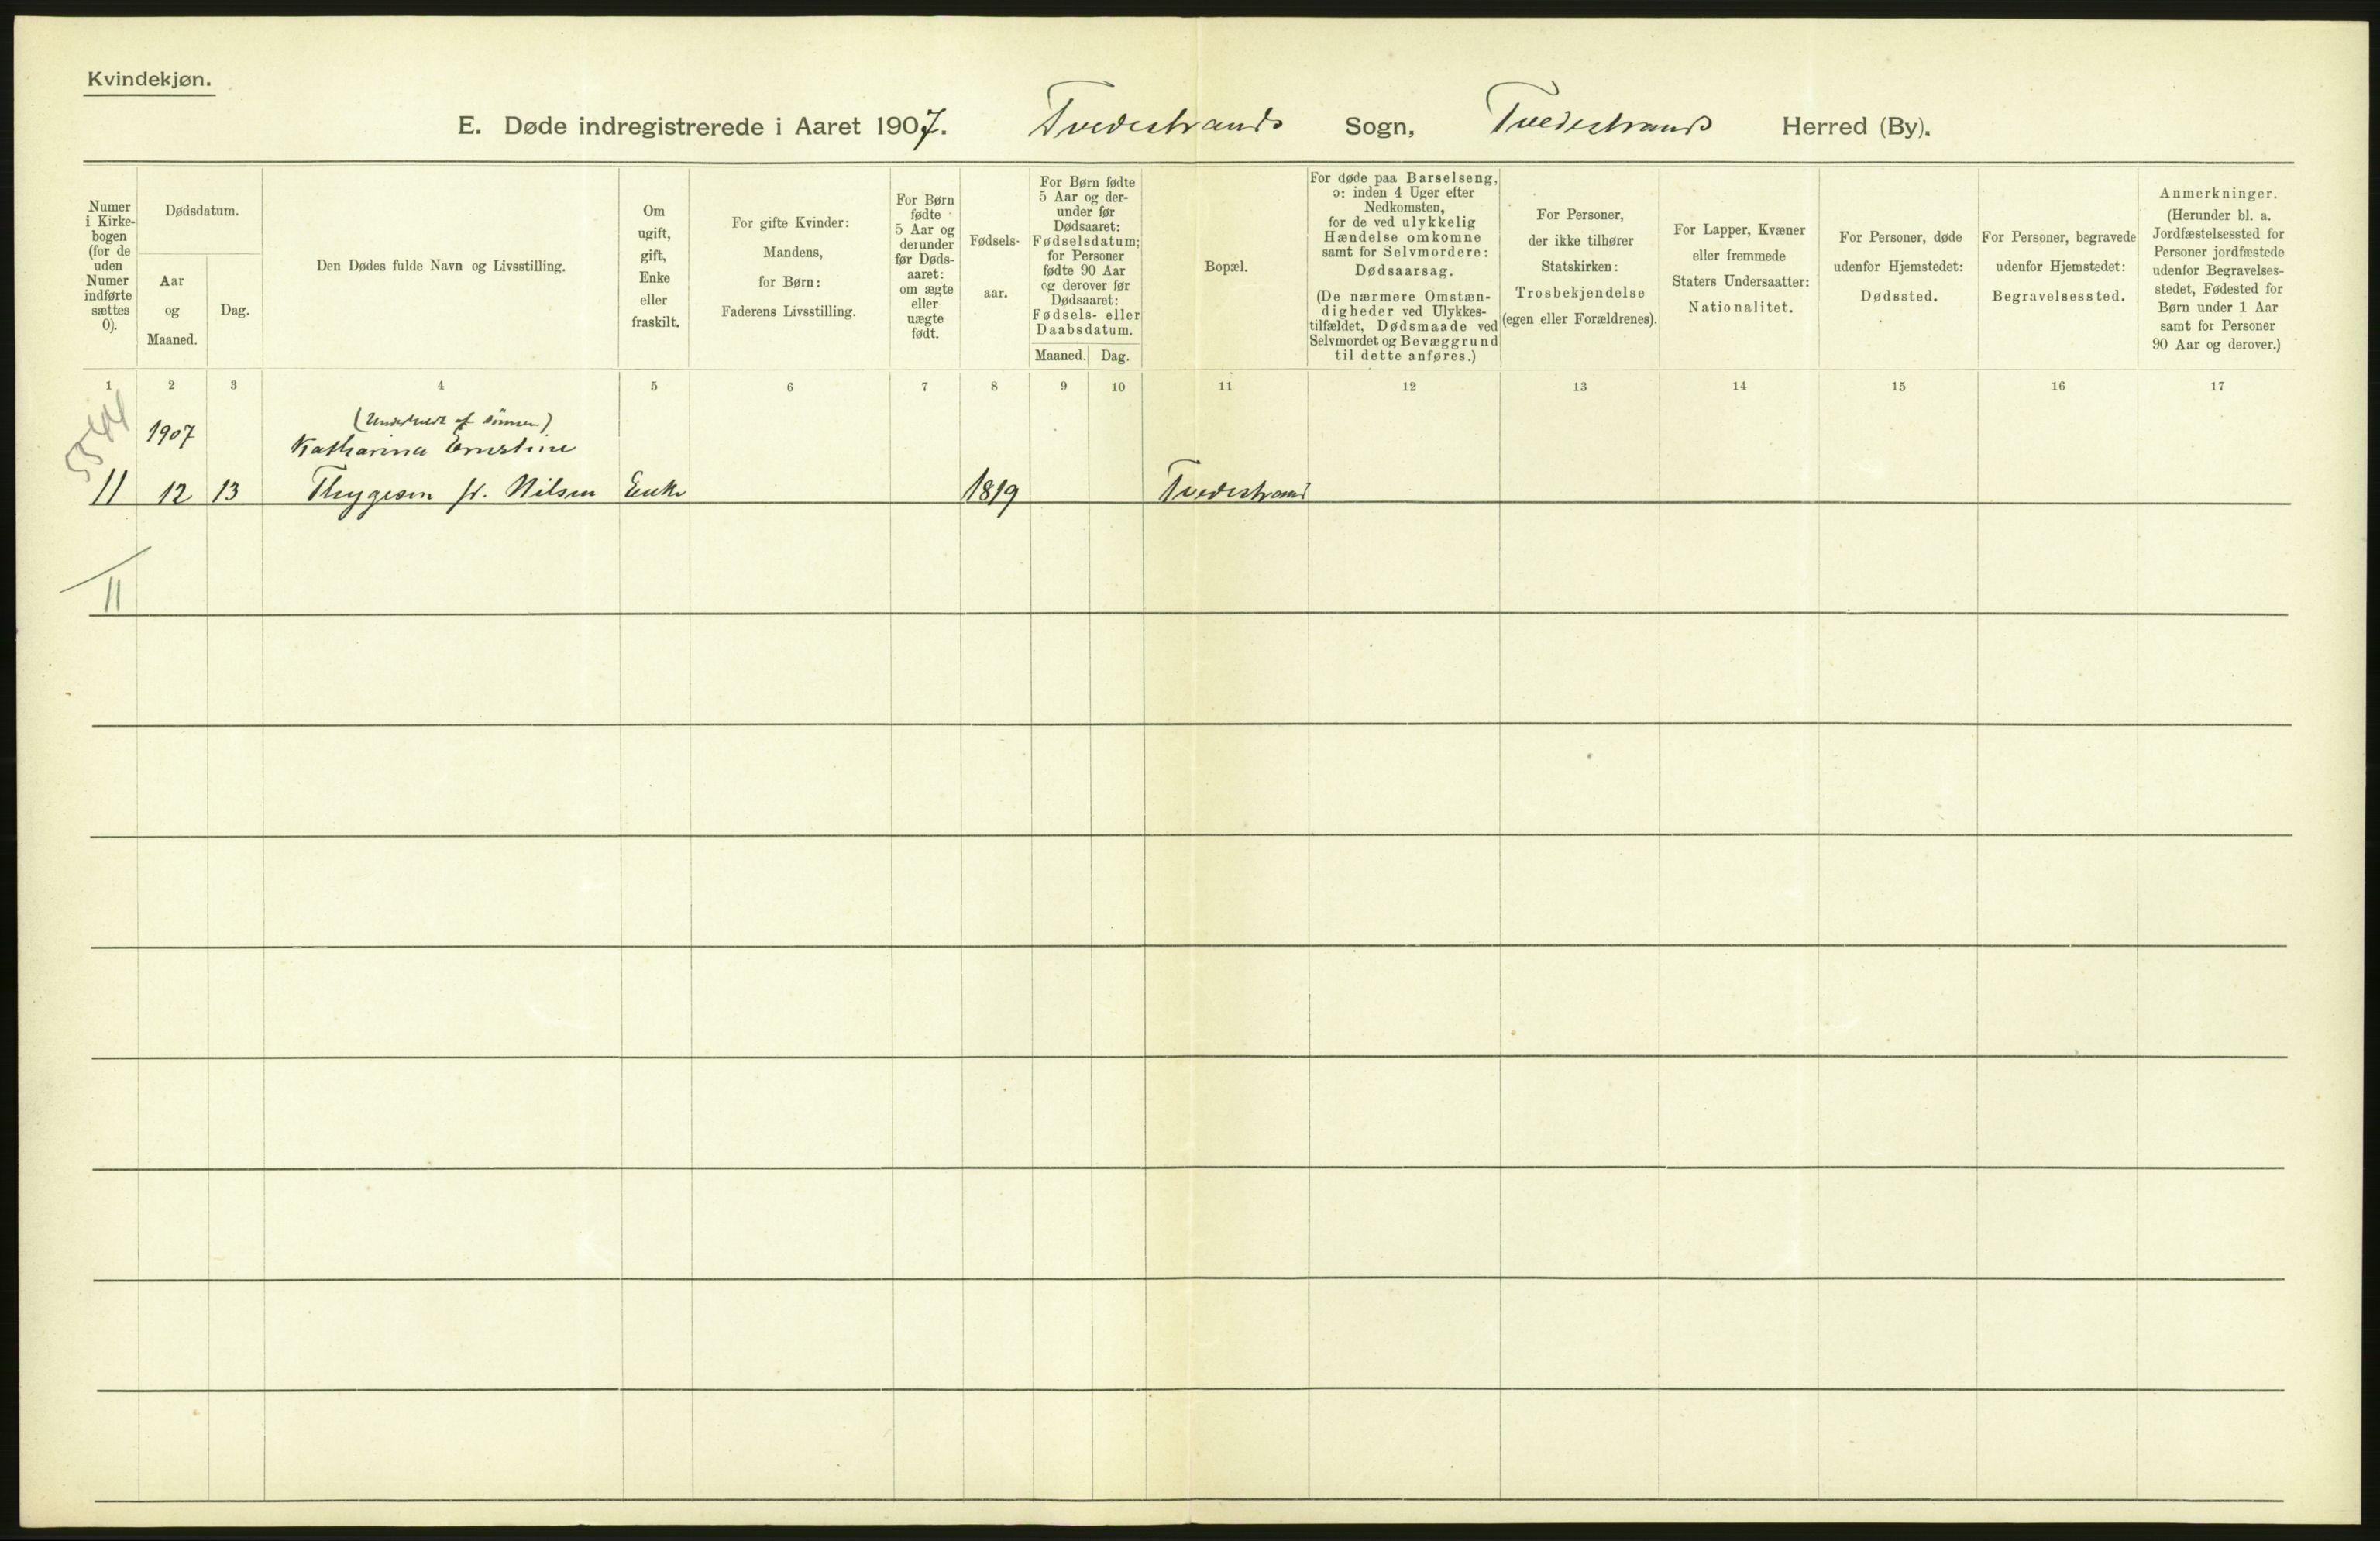 Kvindekjøn.
E. Døde indregistrerede i Aaret 1907. Tvedestrands Sogn, Tvedestrands Herred (By).
Numer
i Kirke-
bogen
(for de
uden
Numer
indførte
sættes
0).
Dødsdatum.
Aar
og
Maaned.
Dag.
Den Dødes fulde Navn og Livsstilling.
Om
ugift,
gift,
Enke
eller
fraskilt.
For gifte Kvinder:
Mandens,
for Børn:
Faderens Livsstilling.
For Børn
fødte
5 Aar og
derunder
før Døds-
aaret:
om ægte
eller
uægte
født.
Fødsels-
aar.
For Børn fødte
5 Aar og der-
under før
Dødsaaret:
Fødselsdatum;
for Personer
fødte 90 Aar
og derover før
Dødsaaret:
Fødsels- eller
Daabsdatum.
Maaned. Dag.
Bopæl.
For døde paa Barselseng,
ɔ: inden 4 Uger efter
Nedkomsten,
for de ved ulykkelig
Hændelse omkomne
samt for Selvmordere:
Dødsaarsag.
(De nærmere Omstæn-
digheder ved Ulykkes-
tilfældet, Dødsmaade ved
Selvmordet og Bevæggrund
til dette anføres.)
For Personer,
der ikke tilhører
Statskirken:
Trosbekjendelse
(egen eller Forældrenes).
For Lapper, Kvæner
eller fremmede
Staters Undersaatter:
Nationalitet.
For Personer, døde
udenfor Hjemstedet:
Dødssted.
For Personer, begravede
udenfor Hjemstedet:
Begravelsessted.
Anmerkninger.
(Herunder bl. a.
Jordfæstelsessted for
Personer jordfæstede
udenfor Begravelses-
stedet, Fødested for
Børn under 1 Aar
samt for Personer
90 Aar og derover.)
1 2 3 4 5 6 7 8 9 10 11 12 13 14 15 16 17
(Underholdt af Sønnen)
1907 Katharina Ernstine
11 12 13 Thygesen f. Nilsen Enke 1819 Tvedestrand
11